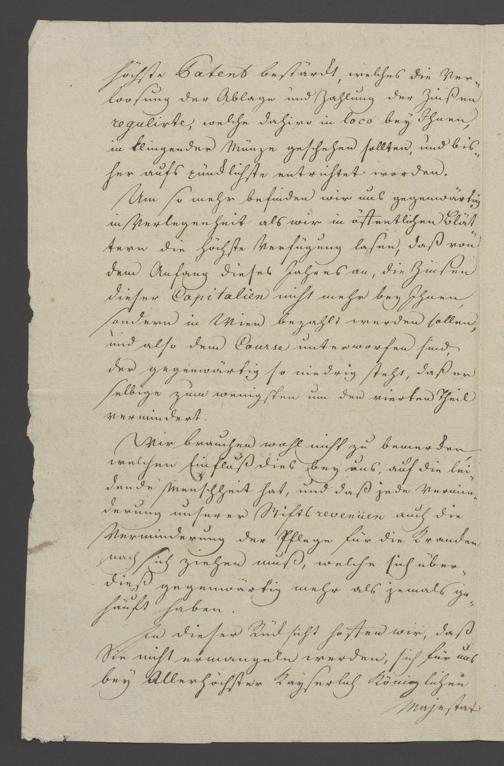 höchste Patent bestärckt, welches die Ver¬
loosung der Ablage und Zahlung der Zinßen
regulirte, welche dahiro in loco bey Ihnen,
in klingender Münze geschehen sollten, und bis¬
her aufs pünctlichste entrichtet worden.
Um so mehr befinden wir uns gegenwärtig
in Verlegenheit als wir in öffentlichen Blät¬
tern die höchste Verfügung lasen, daß von
dem Anfang dieses Jahres an, die Zinsen
dieser Capitalien nicht mehr bey Ihnen
sondern in Wien bezahlt werden sollen,
und also dem Course unterworfen sind,
der gegenwärtig so niedrig steht, daß er
selbige zum wenigsten um den vierten Theil
vermindert.
Wir brauchen wohl nicht zu bemercken
welchen Einfluß dies bey uns, auf die lei¬
dende Menschheit hat, und daß jede Vermin¬
derung unserer Stiftsrevenüen auch die
Verminderung der Pflege für die Krancken
nach sich ziehen muß, welche sich über¬
dieß gegenwärtig mehr als jemals ge¬
häuft haben.
In dieser Rücksicht hoffen wir, daß
Sie nicht ermangeln werden, sich für uns
bey Allerhöchster Kayserlich Königlichen
Majestät